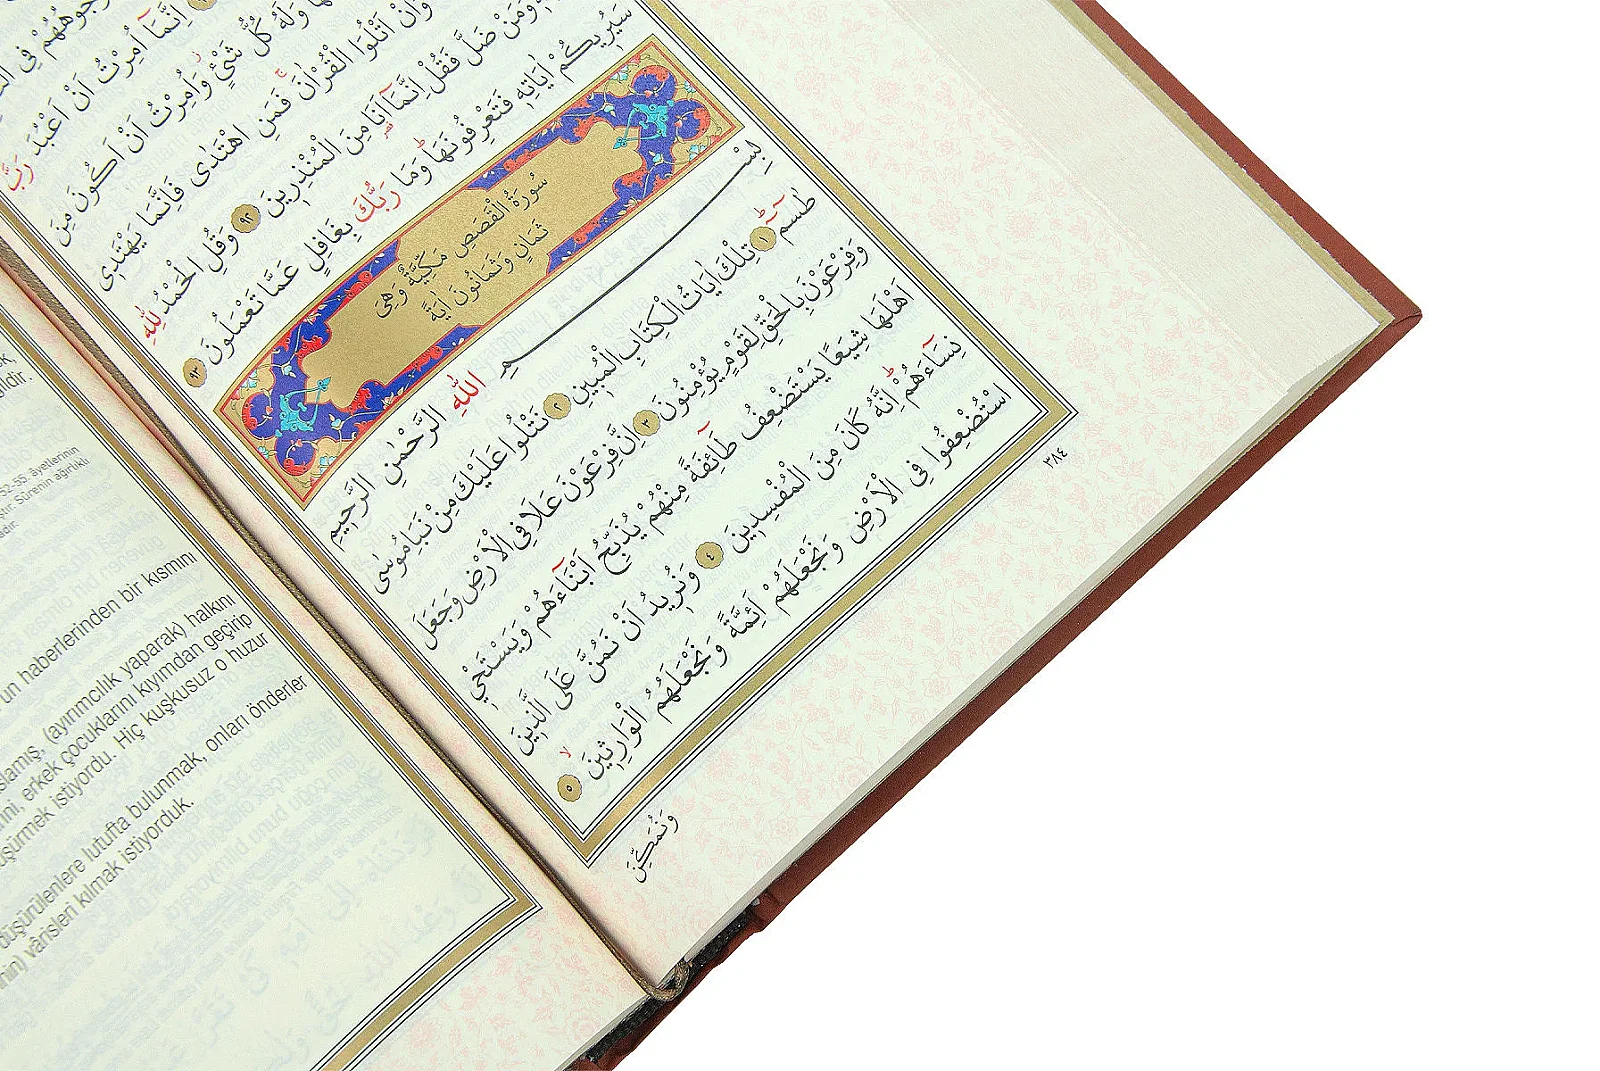 وُجُوهُهُمْ فِى
اِنَّمَٓا اُمِرْتُ اَنْ اَعْبُدَ رَبَّ
وَلَهُ كُلُّ شَيْءٍ وَاُمِرْتُ اَنْ اَكُونَ مِنَ
وَاَنْ اَتْلُوَا الْقُرْاٰنَ فَمَنِ اهْتَدٰى فَاِنَّمَا يَهْتَدِى
وَمَنْ ضَلَّ فَقُلْ اِنَّمَٓا اَنَا مِنَ الْمُنْذِرِينَ ٩٢ وَقُلِ الْحَمْدُ لِلّٰهِ
سَيُرِيكُمْ اٰيَاتِهِ فَتَعْرِفُونَهَا وَمَا رَبُّكَ بِغَافِلٍ عَمَّا تَعْمَلُونَ ٩٣
سُورَةُ الْقَصَصِ مَكِّيَّةٌ وَهِىَ
ثَمَانٍ وَثَمَانُونَ اٰيَةً
بِسْمِ اللّٰهِ الرَّحْمٰنِ الرَّحِيمِ
طٰسٓمٓ ١ تِلْكَ اٰيَاتُ الْكِتَابِ الْمُبِينِ ٢ نَتْلُوا عَلَيْكَ مِنْ نَبَاِ مُوسٰى
وَفِرْعَوْنَ بِالْحَقِّ لِقَوْمٍ يُؤْمِنُونَ ٣ اِنَّ فِرْعَوْنَ عَلَا فِى الْاَرْضِ وَجَعَلَ
اَهْلَهَا شِيَعًا يَسْتَضْعِفُ طَٓائِفَةً مِنْهُمْ يُذَبِّحُ اَبْنَٓاءَهُمْ وَيَسْتَحْيٖ
نِسَٓاءَهُمْ اِنَّهُ كَانَ مِنَ الْمُفْسِدِينَ ٤ وَنُرِيدُ اَنْ نَمُنَّ عَلَى الَّذِينَ
اسْتُضْعِفُوا فِى الْاَرْضِ وَنَجْعَلَهُمْ اَئِمَّةً وَنَجْعَلَهُمُ الْوَارِثِينَ ٥
وَنُمَكِّنَ
٣٨٤
ildir.
52-55. âyetlerinin
ştır. Sûrenin ağırlıklı
adır.
un haberlerinden bir kısmını
slamış, (ayırımcılık yaparak) halkını
rini, erkek çocuklarını kıyımdan geçirip
şürmek istiyordu. Hiç kuşkusuz o huzur
düşürülenlere lutufta bulunmak, onları önderler
nin) vârisleri kılmak istiyorduk.